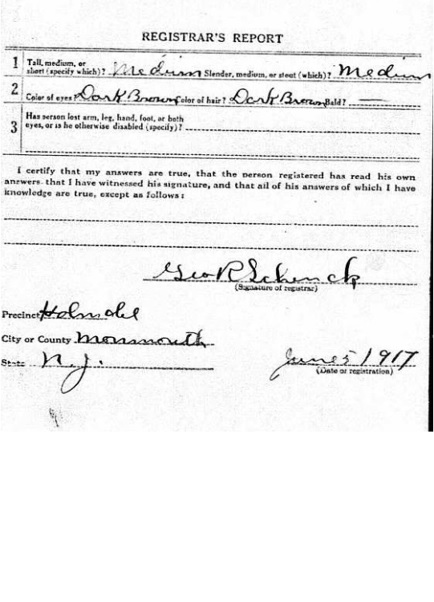 REGISTRAR'S REPORT
1 Tall, medium, or
short (specify which)? Medium Slender, medium, or stout (which)? Medium
2 Color of eyes? Dark Brown Color of hair? Dark Brown Bald? —
3 Has person lost arm, leg, hand, foot, or both
eyes, or is he otherwise disabled (specify)?
I certify that my answers are true, that the person registered has read his own
answers, that I have witnessed his signature, and that all of his answers of which I have
knowledge are true, except as follows:
Geo R Schenck
(Signature of registrar)
Precinct Holmdel
City or County Monmouth
State N.J.
June 5 1917
(Date of registration)